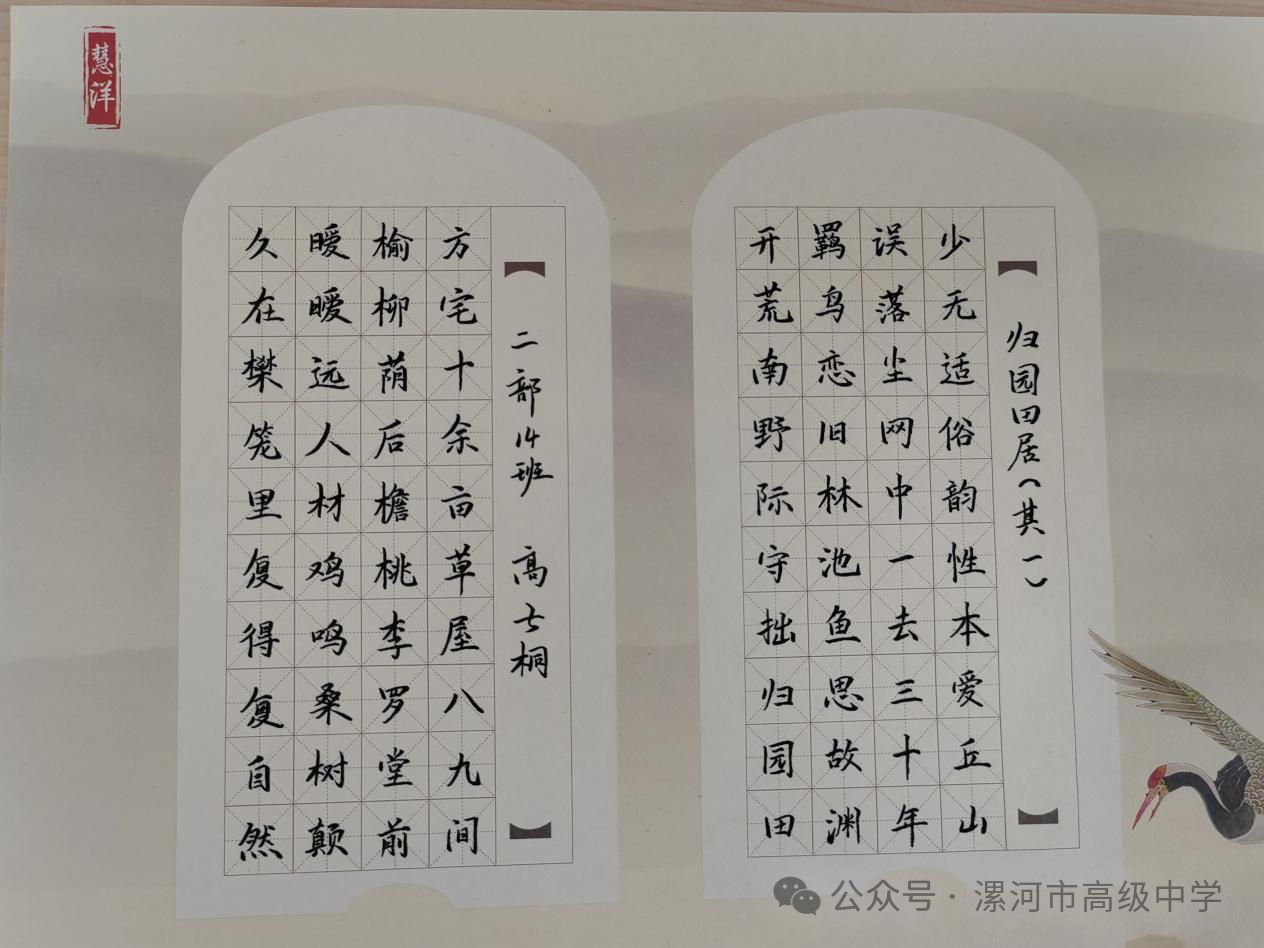 慧洋
归园田居(其一)
少无适俗韵性本爱丘山
误落尘网中一去三十年
羁鸟恋旧林池鱼思故渊
开荒南野际守拙归园田
二部14班 高士桐
方宅十余亩草屋八九间
榆柳荫后檐桃李罗堂前
暧暧远人材鸡鸣桑树颠
久在樊笼里复得复自然
公众号·漯河市高级中学